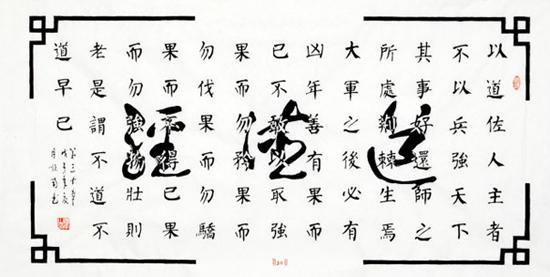 以道佐人主者
不以兵強天下
其事好還師之
所處荊棘生焉
大軍之後必有
凶年善有果而
已不敢以取強
果而勿矜果而
勿伐果而勿驕
果而不得已果
而勿強物壯則
老是謂不道不
道早已
第三十章
道德經